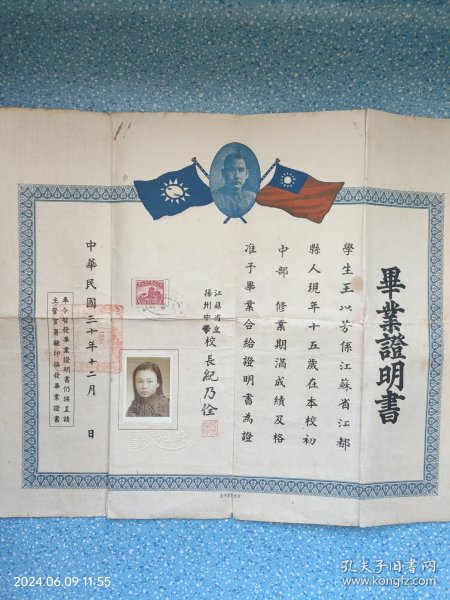 畢業證明書
學生王以芳係江蘇省江都
縣人現年十五歲在本校初
中部 修業期滿成績及格
准予畢業合給證明書為證
江蘇省立
揚州中學校長紀乃佺
中華民國三十年十二月 日
奉令暫發畢業證明書仍候呈請
主管官署驗印換發畢業證書
2024.06.09 11:55
孔夫子旧书网
www.kongfz.com